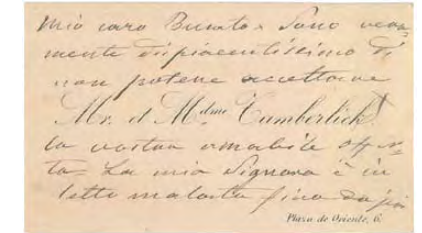 Mio caro Bunato. Sono vera-
mente dispiacentissimo di
non poterne accettarne
Mr. et Mdme Tamberlick
la vostra amabile offer-
ta. La mia Signora è in
letto malata fino da
Plaza de Oriente, 6.